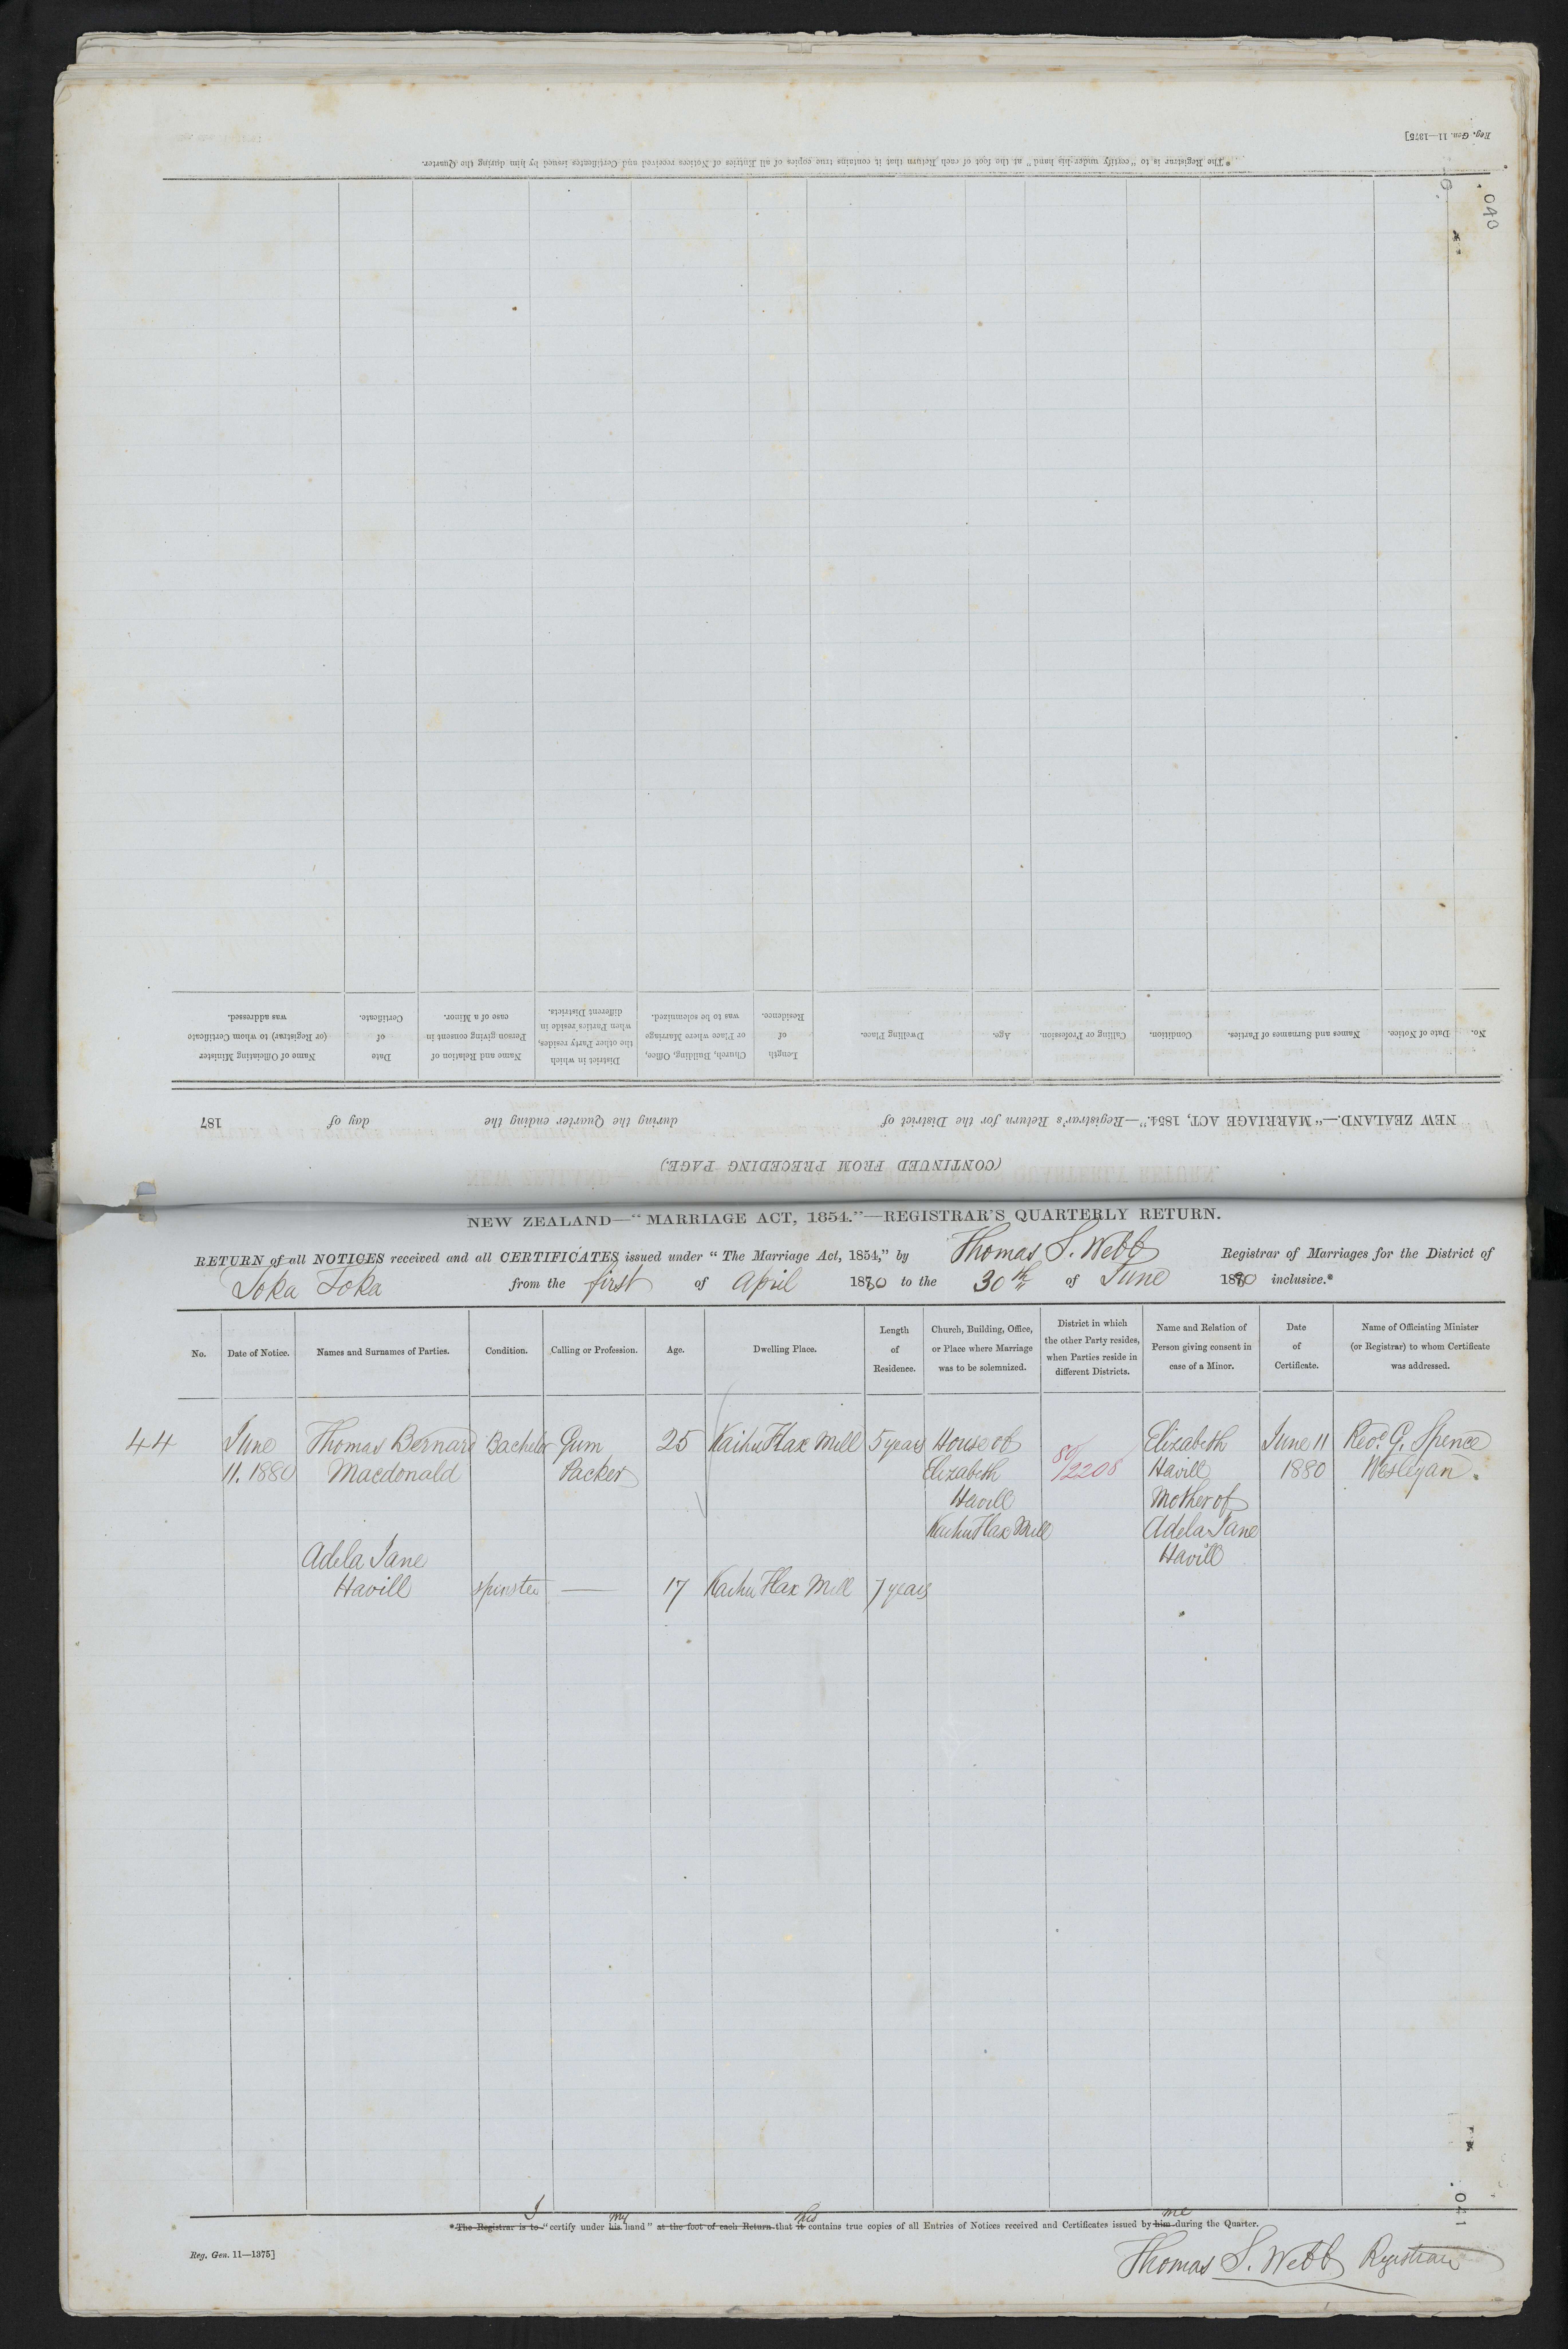 Reg. Gen. 11—1875]
*The Registrar is to "certify under his hand" at the foot of each Return that it contains true copies of all Entries of Notices received and Certificates issued by him during the Quarter.
040
(CONTINUED FROM PRECEDING PAGE.)
NEW ZEALAND.—"MARRIAGE ACT, 1854."—Registrar's Return for the District of during the Quarter ending the day of 187
No.
Date of Notice.
Names and Surnames of Parties.
Condition.
Calling or Profession.
Age.
Dwelling Place.
Length
of
Residence.
Church, Building, Office,
or Place where Marriage
was to be solemnized.
District in which
the other Party resides,
when Parties reside in
different Districts.
Name and Relation of
Person giving consent in
case of a Minor.
Date
of
Certificate.
Name of Officiating Minister
(or Registrar) to whom Certificate
was addressed.
NEW ZEALAND—"MARRIAGE ACT, 1854."—REGISTRAR'S QUARTERLY RETURN.
RETURN of all NOTICES received and all CERTIFICATES issued under "The Marriage Act, 1854," by Thomas S. Webb Registrar of Marriages for the District of
Toka Toka from the first of April 1880 to the 30th of June 1880 inclusive.*
No.
Date of Notice.
Names and Surnames of Parties.
Condition.
Calling or Profession.
Age.
Dwelling Place.
Length
of
Residence.
Church, Building, Office,
or Place where Marriage
was to be solemnized.
District in which
the other Party resides,
when Parties reside in
different Districts.
Name and Relation of
Person giving consent in
case of a Minor.
Date
of
Certificate.
Name of Officiating Minister
(or Registrar) to whom Certificate
was addressed.
44
June
11. 1880
Thomas Bernard
Macdonald
Bachelor
Gum
Packer
25
Kaihu Flax Mill
5 years
House of
Elizabeth
Havill
Kaihu Flax Mill
80/2208
Elizabeth
Havill
Mother of
Adela Jane
Havill
June 11
1880
Revd. G. Spence
Wesleyan.
Adela Jane
Havill
Spinster
—
17
Kaihu Flax Mill
7 years
I my this me
*The Registrar is to "certify under his hand" at the foot of each Return that it contains true copies of all Entries of Notices received and Certificates issued by him during the Quarter.
Reg. Gen. 11—1875]
Thomas S. Webb Registrar